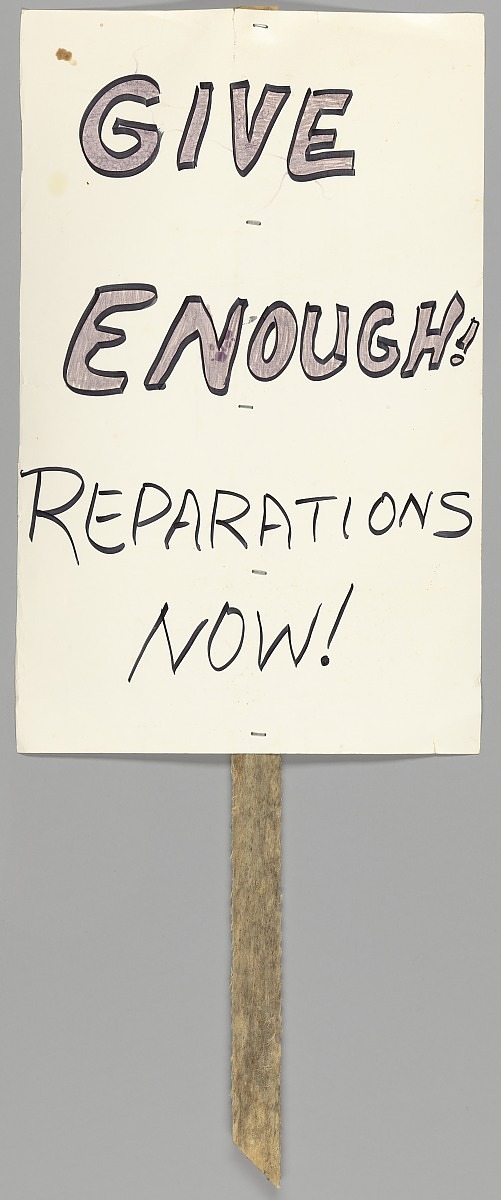 GIVE
ENOUGH!
REPARATIONS
NOW!